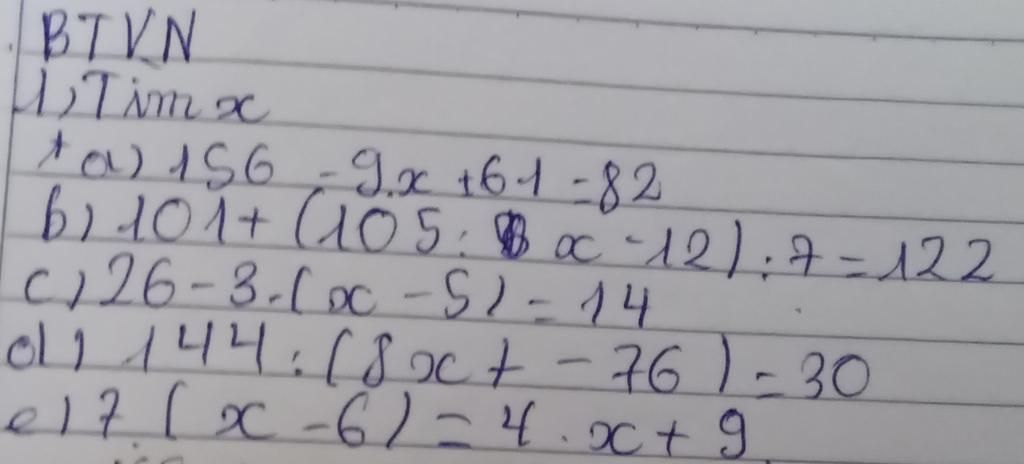 BTVN
1, Tìm x
+ a) 156 - 9.x + 61 = 82
b) 101 + (105 : x - 12) : 7 = 122
c) 26 - 3.(x - 5) = 14
d) 144 : (8x + - 76) = 30
e) 7 (x - 6) = 4 . x + 9